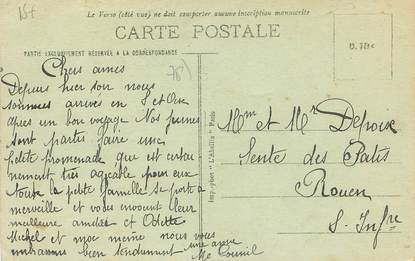 157
Le Verso (côté vue) ne doit comporter aucune inscription manuscrite
CARTE POSTALE
PARTIE EXCLUSIVEMENT RÉSERVÉE A LA CORRESPONDANCE
(78)
Chers amis
Depuis hier soir nous
sommes arrivés en S et Oise
après un bon voyage Nos jeunes
sont partis faire une
petite promenade qui est certai
nement très agréable pour eux
toute la petite famille se porte à
merveille et vous envoient leur
meilleure amitié et Odette
Michel et moi même nous vous
embrassons bien tendrement une amie
Mme et Mr
Sente des Patis
Rouen
S. Infre
Imp.-phot "L'Abeille" Paris